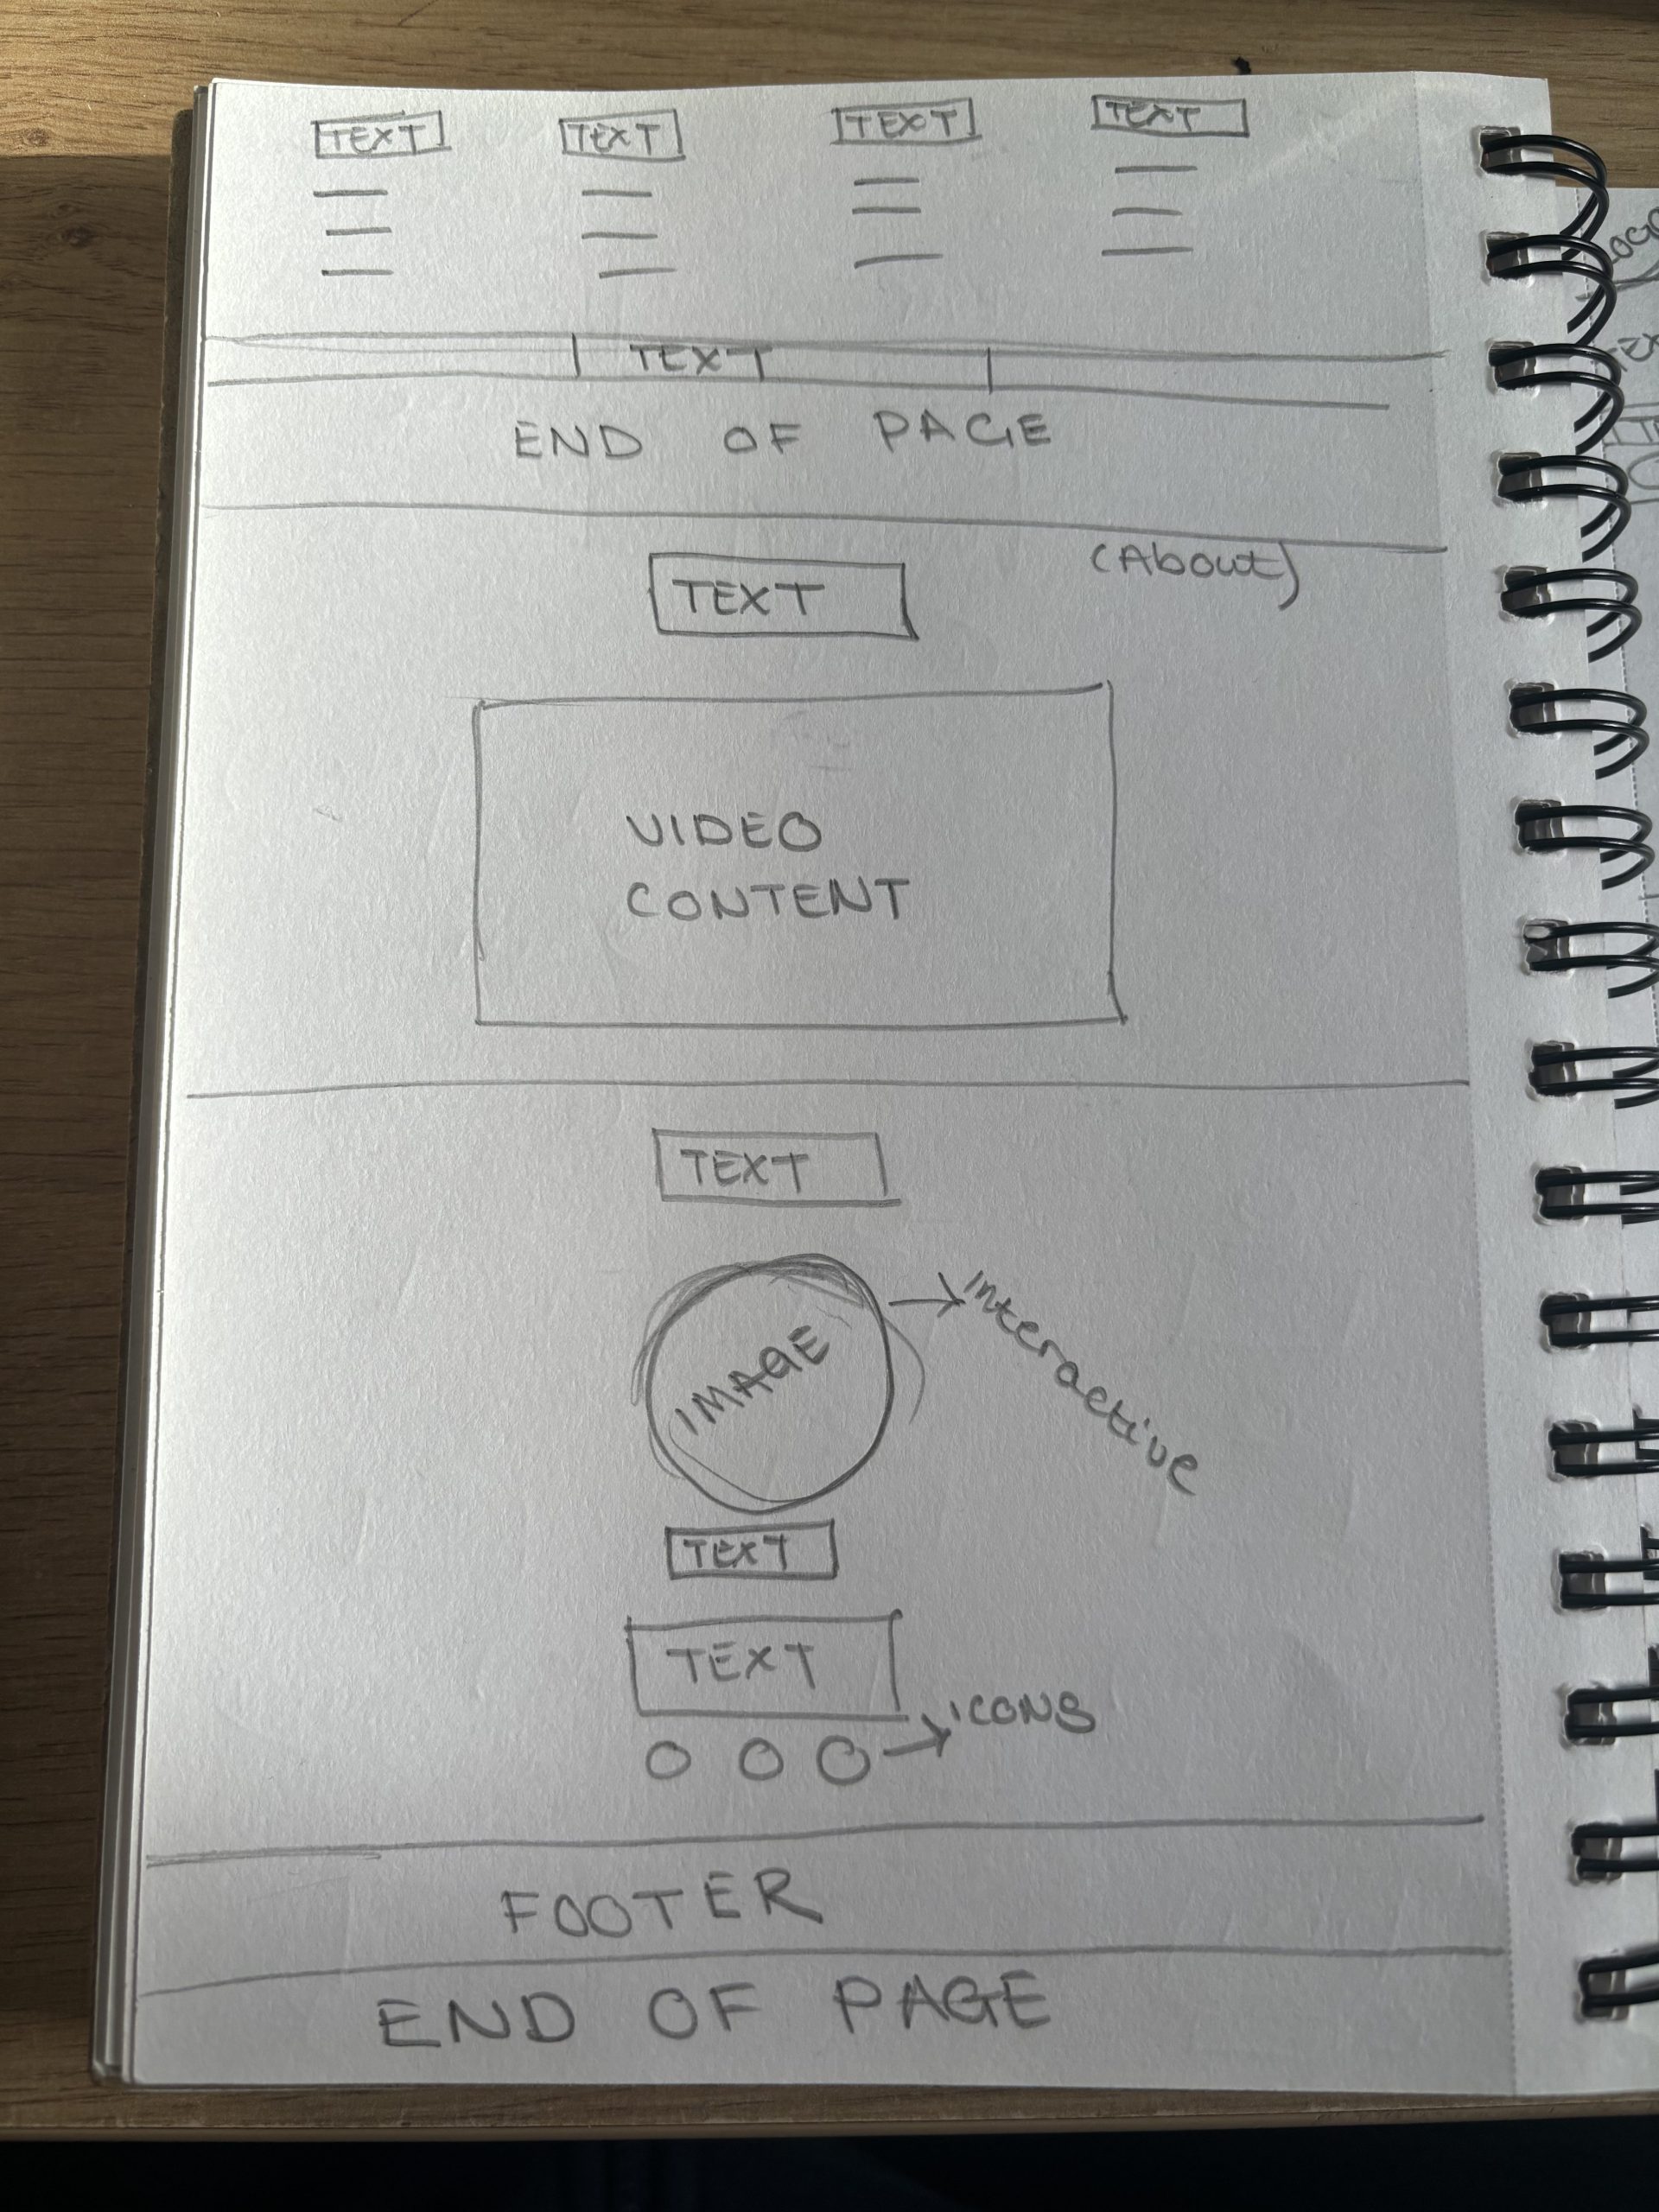 TEXT TEXT TEXT TEXT
TEXT
END OF PAGE
(About)
TEXT
VIDEO
CONTENT
TEXT
IMAGE
interactive
TEXT
TEXT
ICONS
FOOTER
END OF PAGE